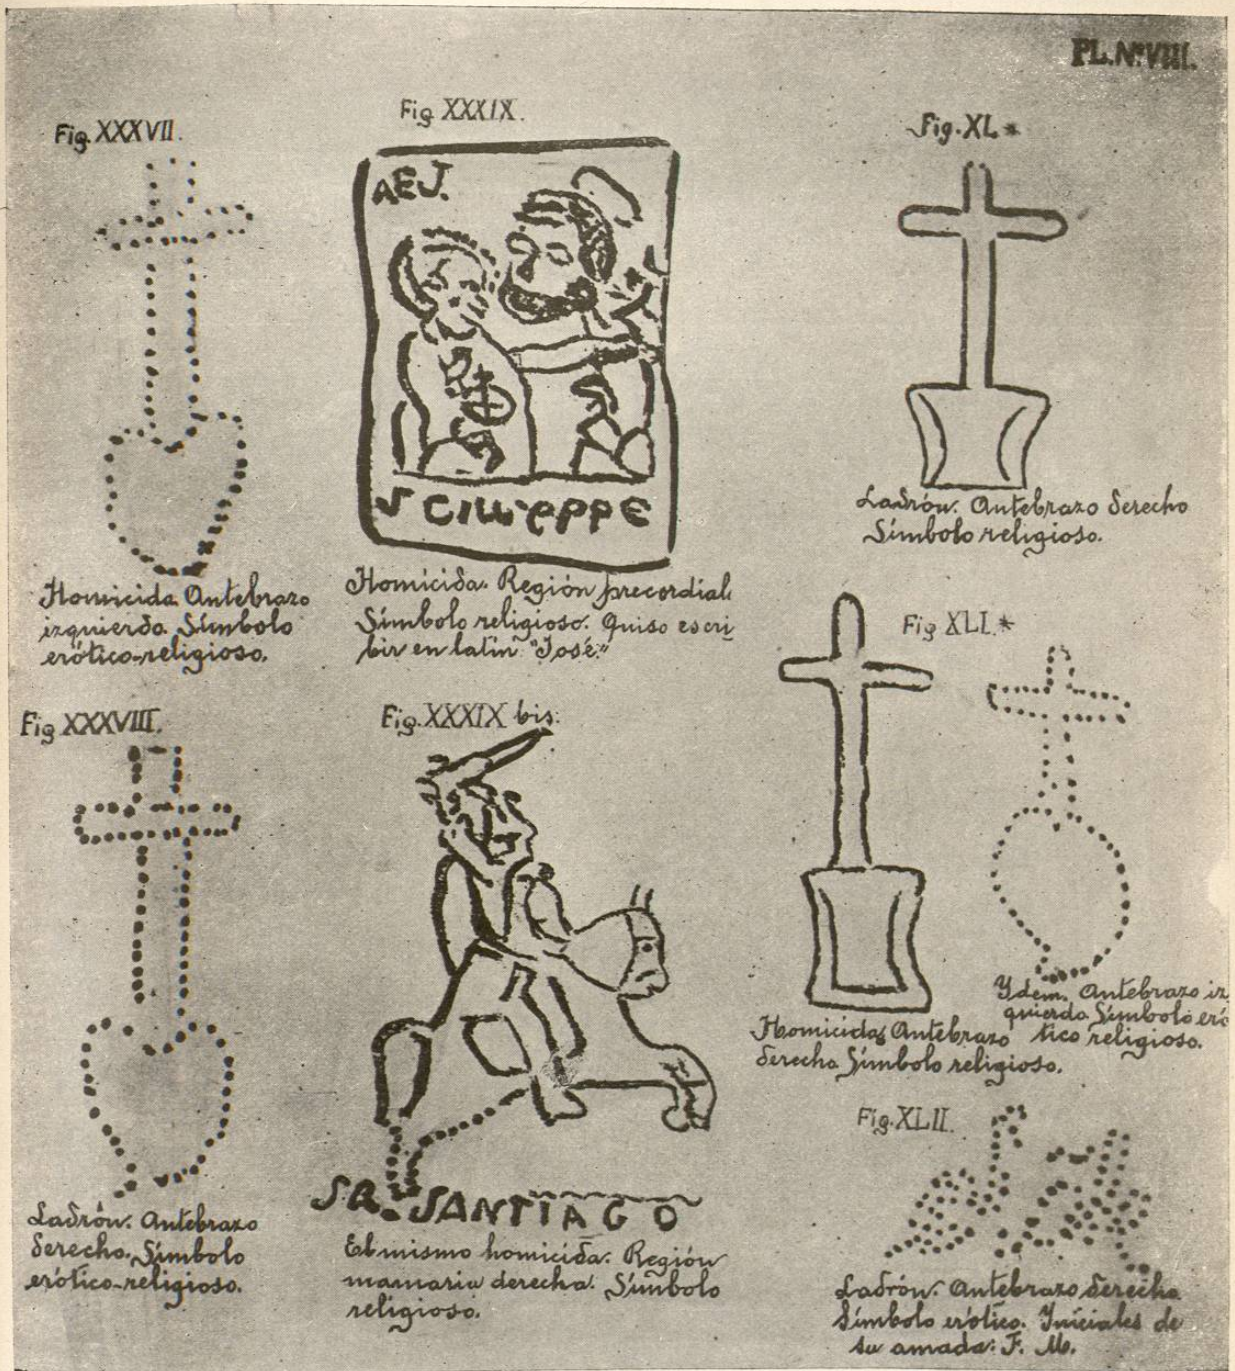 PL.Nº VIII.
Fig. XXXVII.
Homicida Antebrazo
izquierdo. Símbolo
erótico-religioso.
Fig XXXVIII.
Ladrón. Antebrazo
derecho. Símbolo
erótico-religioso.
Fig XXXIX.
AEJ.
S CIUSEPPE
Homicida. Región precordial.
Símbolo religioso. Quiso escri
bir en latín "José."
Fig. XXXIX bis.
SR. SANTIAGO
El mismo homicida. Región
mamaria derecha. Símbolo
religioso.
Fig. XL *
Ladrón. Antebrazo derecho
Símbolo religioso.
Fig XLI. *
Homicida Antebrazo
derecho Símbolo religioso.
Ydem. Antebrazo iz
quierdo Símbolo eró
tico religioso.
Fig. XLII.
Ladrón. Antebrazo derecho
Símbolo erótico. Yniciales de
su amada: F. M.